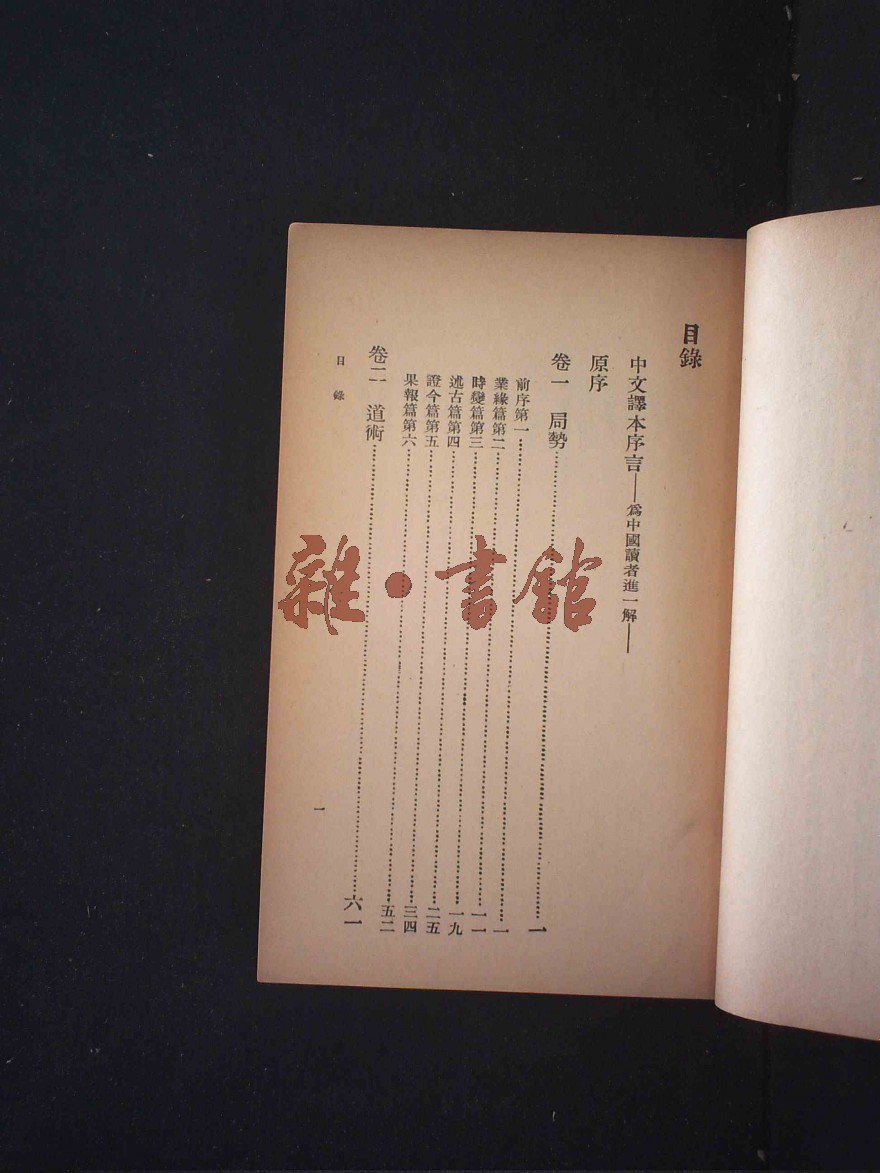 目錄
中文譯本序言——爲中國讀者進一解——
原序
卷一 局勢……一
前序第一……一
業緣篇第二……一一
時變篇第三……一九
述古篇第四……二五
證今篇第五……三四
果報篇第六……五二
卷二 道術……六一
目錄
一
雜·書館